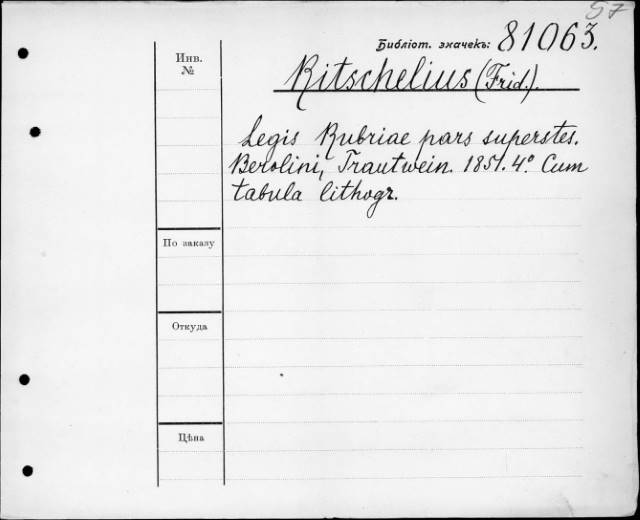 57
Библіот. значекъ: 81063.
Инв.
№
Ritschelius (Frid.).
Legis Rubriae pars superstes.
Berolini, Trautwein. 1851. 4° Cum
tabula lithogr.
По заказу
Откуда
Цѣна